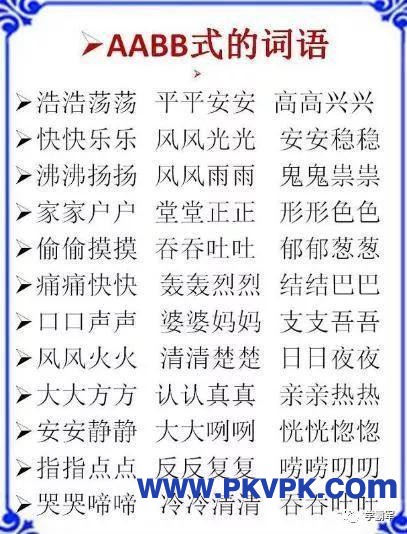 ➢AABB式的词语
➢
➢浩浩荡荡 平平安安 高高兴兴
➢快快乐乐 风风光光 安安稳稳
➢沸沸扬扬 风风雨雨 鬼鬼祟祟
➢家家户户 堂堂正正 形形色色
➢偷偷摸摸 吞吞吐吐 郁郁葱葱
➢痛痛快快 轰轰烈烈 结结巴巴
➢口口声声 婆婆妈妈 支支吾吾
➢风风火火 清清楚楚 日日夜夜
➢大大方方 认认真真 亲亲热热
➢安安静静 大大咧咧 恍恍惚惚
➢指指点点 反反复复 唠唠叨叨
WWW.PKVPK.COM
➢哭哭啼啼 冷冷清清 吞吞吐吐
学霸军